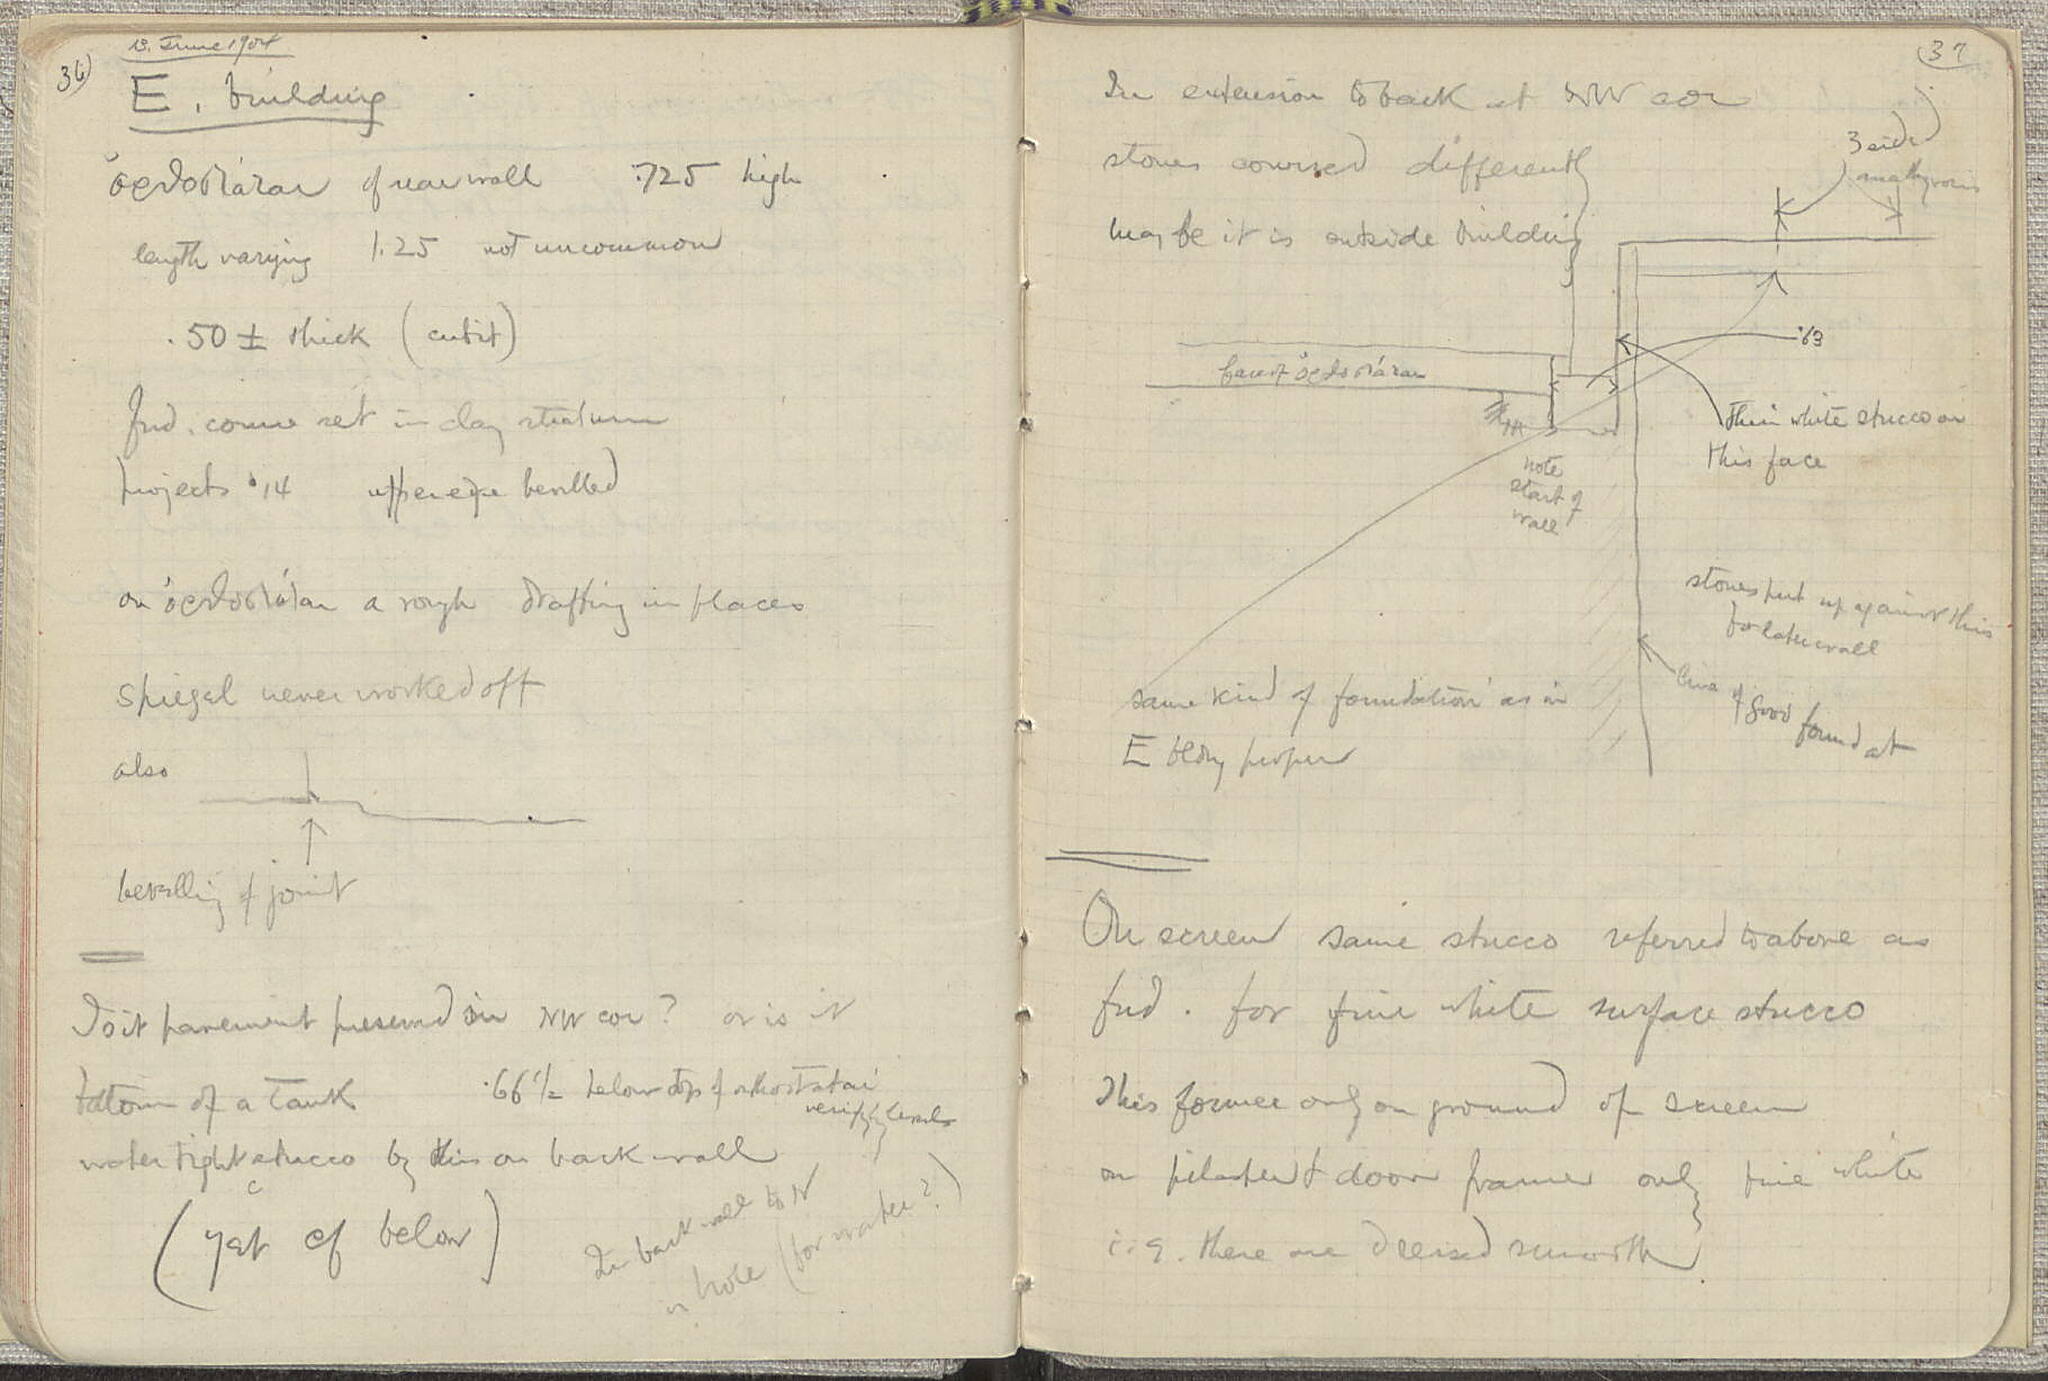 36)
13. June 1904
E. building
ὀρθοστάται of rear wall .725 high
length varying 1.25 not uncommon
.50 ± thick (cubit)
fnd. course set in clay stratum
projects .14 upper edge bevelled
on ὀρθοστάται a rough drafting in places
Spiegel never worked off
also
bevelling of joint
Is it pavement preserved in NW cor? or is it
bottom of a tank .66½ below top of orthostatai
verify by levels
water tight stucco by this on back wall
(yet cf below)
In back wall to N
is hole (for water?)
37
In extension to back at NW cor
stones coursed differently
may be it is outside building
3 sided
anathyrosis
.63
face of ὀρθοστάται
thin white stucco on
this face
note
start of
wall
stones put up against this
for later wall
line of good found at
same kind of foundation as in
E bldg proper
On screen same stucco referred to above as
fnd. for fine white surface stucco
This former only on ground of screen
on pilaster & door frame only fine white
i.e. these are dressed smooth